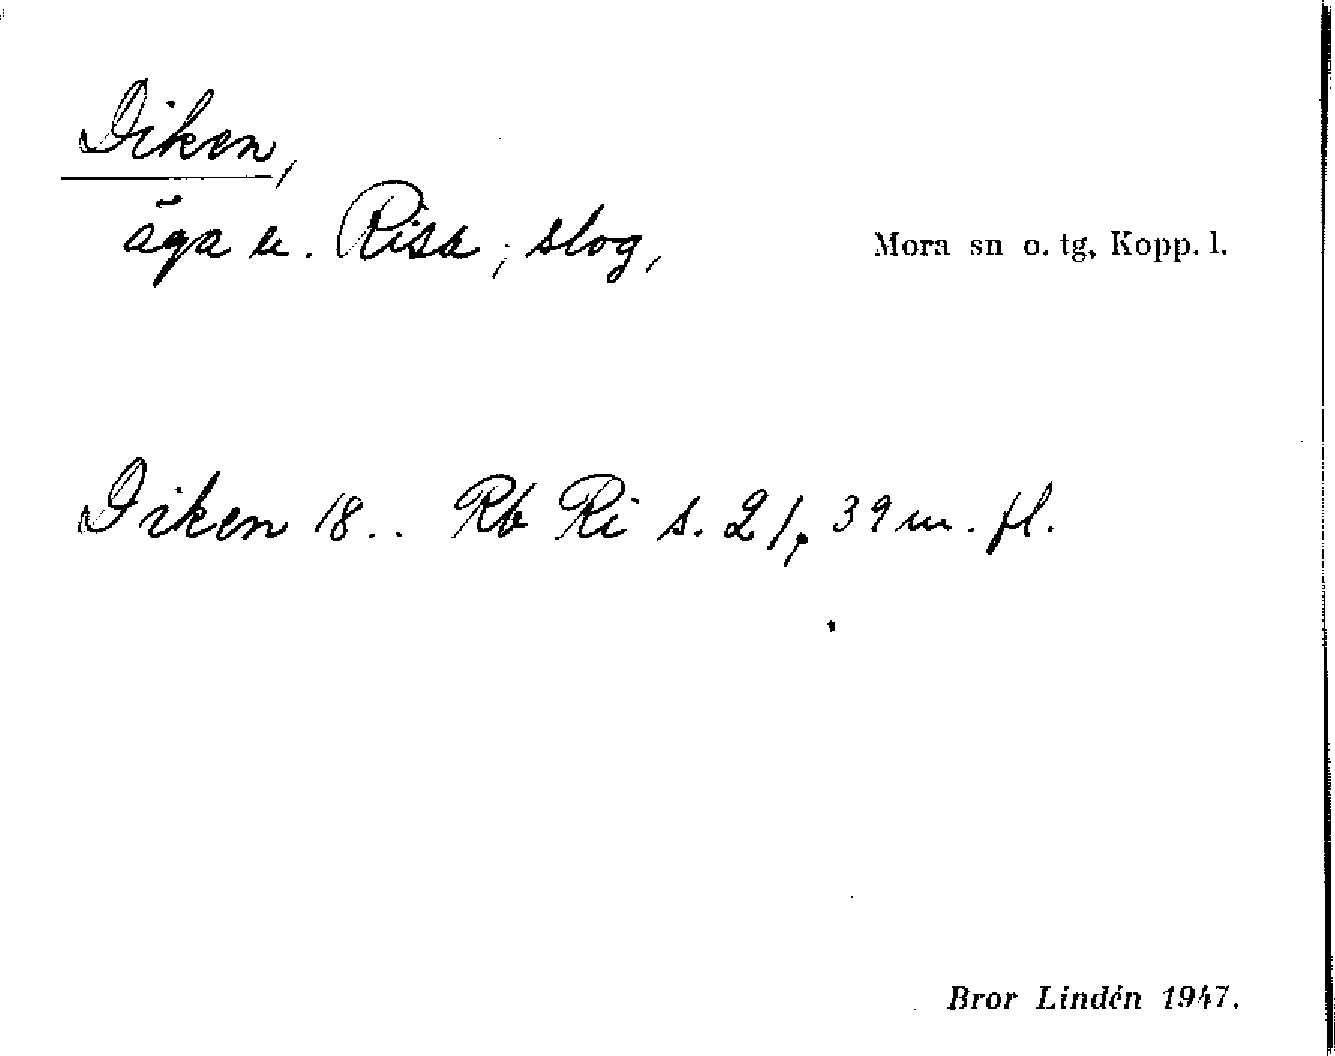 Diken,
äga u. Risa, slog,
Mora sn o. tg, Kopp. l.
Diken 18.. Rb Ri s. 21, 39 m. fl.
Bror Lindén 1947.